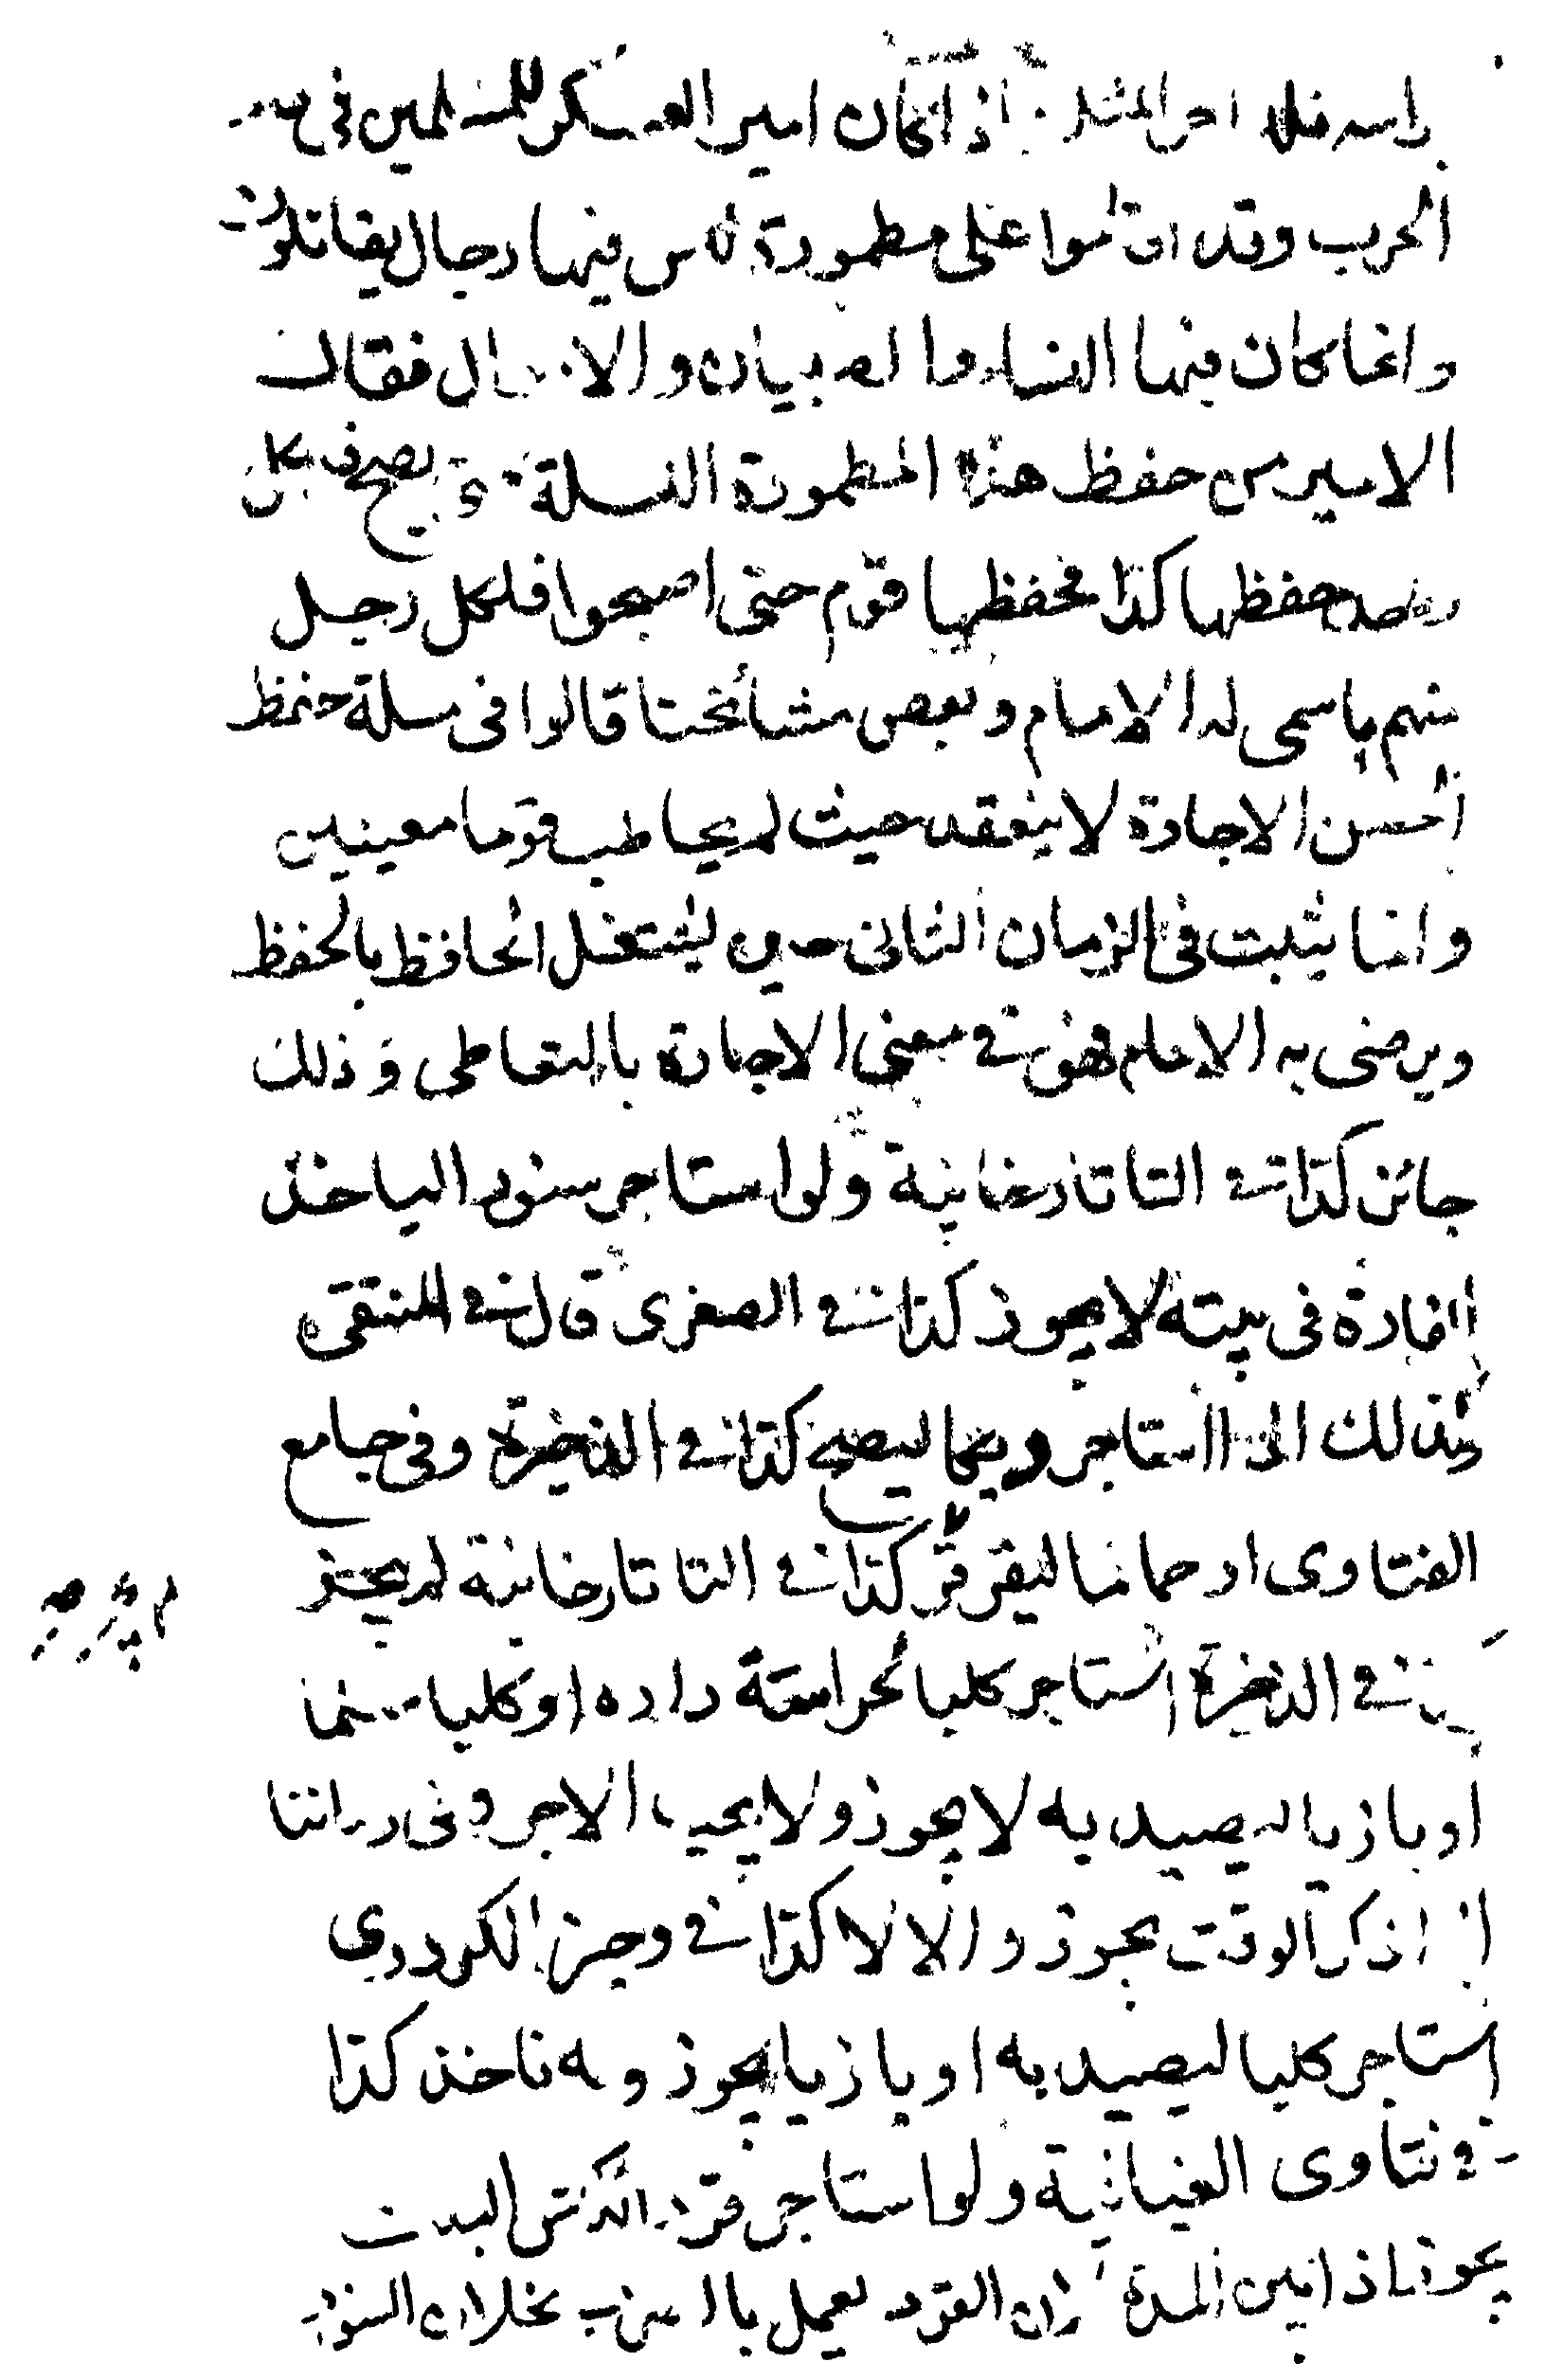 براسه فله اجر المثل اذا كان امير العسكر للمسلمين في
الحرب وقد اقاموا على مطمورة ليس فيها رجال يقاتلون
وانما كان فيها النساء والصبيان والاموال فقال
الامير من حفظ هذه المطمورة الليلة حتى يصبح فلكل
حفظها كذا فحفظها قوم حتى اصبحوا فلكل رجل
منهم ما سمى له الامام وبعض مشائخنا قالوا في مسئلة حفظ
الحصن الاجارة لا ينعقد حيث لم يخاطب قوما معينين
وانما يثبت في الزمان الثاني حين يشتغل الحافظ بالحفظ
ويرضى به الامام فهو في معنى الاجارة بالتعاطي وذلك
جائز كذا في التاتارخانية ولو استاجر سنورا لياخذ
الفارة في بيته لا يجوز كذا في الصغرى قال في المنتقى
وكذلك الى استاجر ديكا ليصيح كذا في الذخيرة وفي جامع
الفتاوى او حماما ليقرقر كذا في التاتارخانية لم يجز
في الذخيرة استاجر كلبا لحراسة داره او كلبا
او بازيا ليصيد به لا يجوز ولا يجب الاجر وفي رواية
اذا ذكر الوقت يجوز والا لا كذا في وجيز الكردري
استاجر كلبا ليصيد به او بازيا يجوز وبه ناخذ كذا
في فتاوى الغياثية ولو استاجر قردا لكنس البيت
يجوز اذا بين المدة لان القرد يعمل بالضرب بخلاف السنور